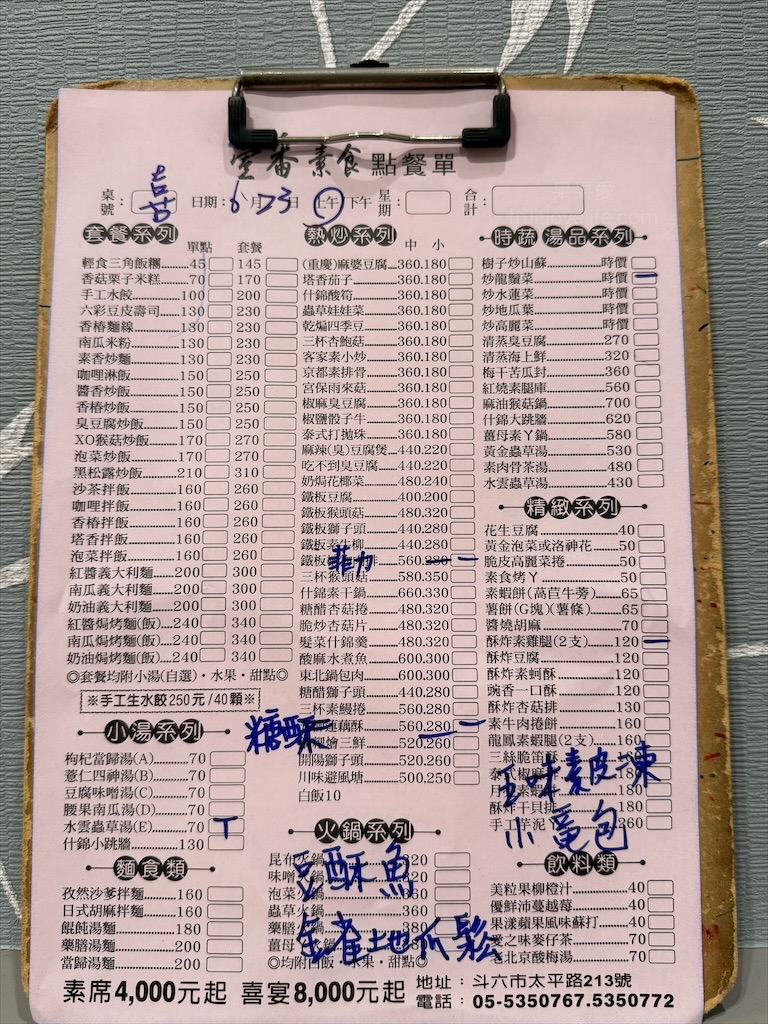 壹番素食 點餐單
桌號： 喜 日期：6月23日 上午/下午 星期： 合計：
套餐系列 單點 套餐
輕食三角飯糰 45 145
香菇栗子米糕 70 170
手工水餃 100 200
六彩豆皮壽司 130 230
香椿麵線 130 230
南瓜米粉 130 230
素香炒麵 130 230
咖哩淋飯 150 250
醬香炒飯 150 250
香椿炒飯 150 250
臭豆腐炒飯 150 250
XO猴菇炒飯 170 270
泡菜炒飯 170 270
黑松露炒飯 210 310
沙茶拌飯 160 260
咖哩拌飯 160 260
香椿拌飯 160 260
塔香拌飯 160 260
泡菜拌飯 160 260
紅醬義大利麵 200 300
南瓜義大利麵 200 300
奶油義大利麵 200 300
紅醬焗烤麵(飯) 240 340
南瓜焗烤麵(飯) 240 340
奶油焗烤麵(飯) 240 340
◎套餐均附小湯(自選)、水果、甜點◎
※手工生水餃250元/40顆※
小湯系列
枸杞當歸湯(A) 70
薏仁四神湯(B) 70
豆腐味噌湯(C) 70
腰果南瓜湯(D) 70
水雲蟲草湯(E) 70 T
什錦小跳牆 130
麵食類
孜然沙爹拌麵 160
日式胡麻拌麵 160
餛飩湯麵 180
藥膳湯麵 200
當歸湯麵 200
熱炒系列 中 小
(重慶)麻婆豆腐 360.180
塔香茄子 360.180
什錦酸筍 360.180
蟲草娃娃菜 360.180
乾煸四季豆 360.180
三杯杏鮑菇 360.180
客家素小炒 360.180
京都素排骨 360.180
宮保雨來菇 360.180
椒麻臭豆腐 360.180
椒鹽骰子牛 360.180
泰式打拋珠 360.180
麻辣(臭)豆腐煲 440.220
吃不到臭豆腐 440.220
奶焗花椰菜 480.240
鐵板豆腐 400.200
鐵板猴頭菇 480.320
鐵板獅子頭 440.280
鐵板素牛柳 440.280
鐵板 菲力 排 560.
三杯猴頭菇 580.350
什錦素干鍋 660.330
糖醋杏菇捲 480.320
脆炒杏菇片 480.320
髮菜什錦羹 480.320
酸麻水煮魚 600.300
東北鍋包肉 600.300
糖醋獅子頭 440.280
三杯素鰻捲 560.280
糖酥 蓮藕酥 560.280
燴三鮮 520.260
開陽獅子頭 520.260
川味避風塘 500.250
白飯10
火鍋系列
昆布火鍋 320
味噌火鍋
泡菜火鍋 360
蟲草火鍋 360
藥膳 鍋 380
薑母 鍋
◎均附白飯、水果、甜點◎
豆酥魚
金雀地瓜鬆
時蔬 湯品系列
樹子炒山蘇 時價
炒龍鬚菜 時價
炒水蓮菜 時價
炒地瓜葉 時價
炒高麗菜 時價
清蒸臭豆腐 270
清蒸海上鮮 320
梅干苦瓜封 360
紅燒素腿庫 560
麻油猴菇鍋 700
什錦大跳牆 620
薑母素ㄚ鍋 580
黃金蟲草湯 530
素肉骨茶湯 480
水雲蟲草湯 430
精緻系列
花生豆腐 40
黃金泡菜或洛神花 50
脆皮高麗菜捲 50
素食烤ㄚ 50
素蝦餅(萵苣牛蒡) 65
薯餅(G塊)(薯條) 65
醬燒胡麻 70
酥炸素雞腿(2支) 120
酥炸豆腐 120
酥炸素蚵酥 120
豌香一口酥 120
酥炸杏菇排 130
素牛肉捲餅 160
龍鳳素蝦腿(2支) 160
三絲脆笛酥 160
泰式椒麻 180
素蝦 180
酥炸干貝排 180
手工芋泥 260
五味素皮凍
小籠包
飲料類
美粒果柳橙汁 40
優鮮沛蔓越莓 40
果漾蘋果風味蘇打 40
愛之味麥仔茶 70
老北京酸梅湯 70
素席4,000元起 喜宴8,000元起
地址：斗六市太平路213號
電話：05-5350767.5350772